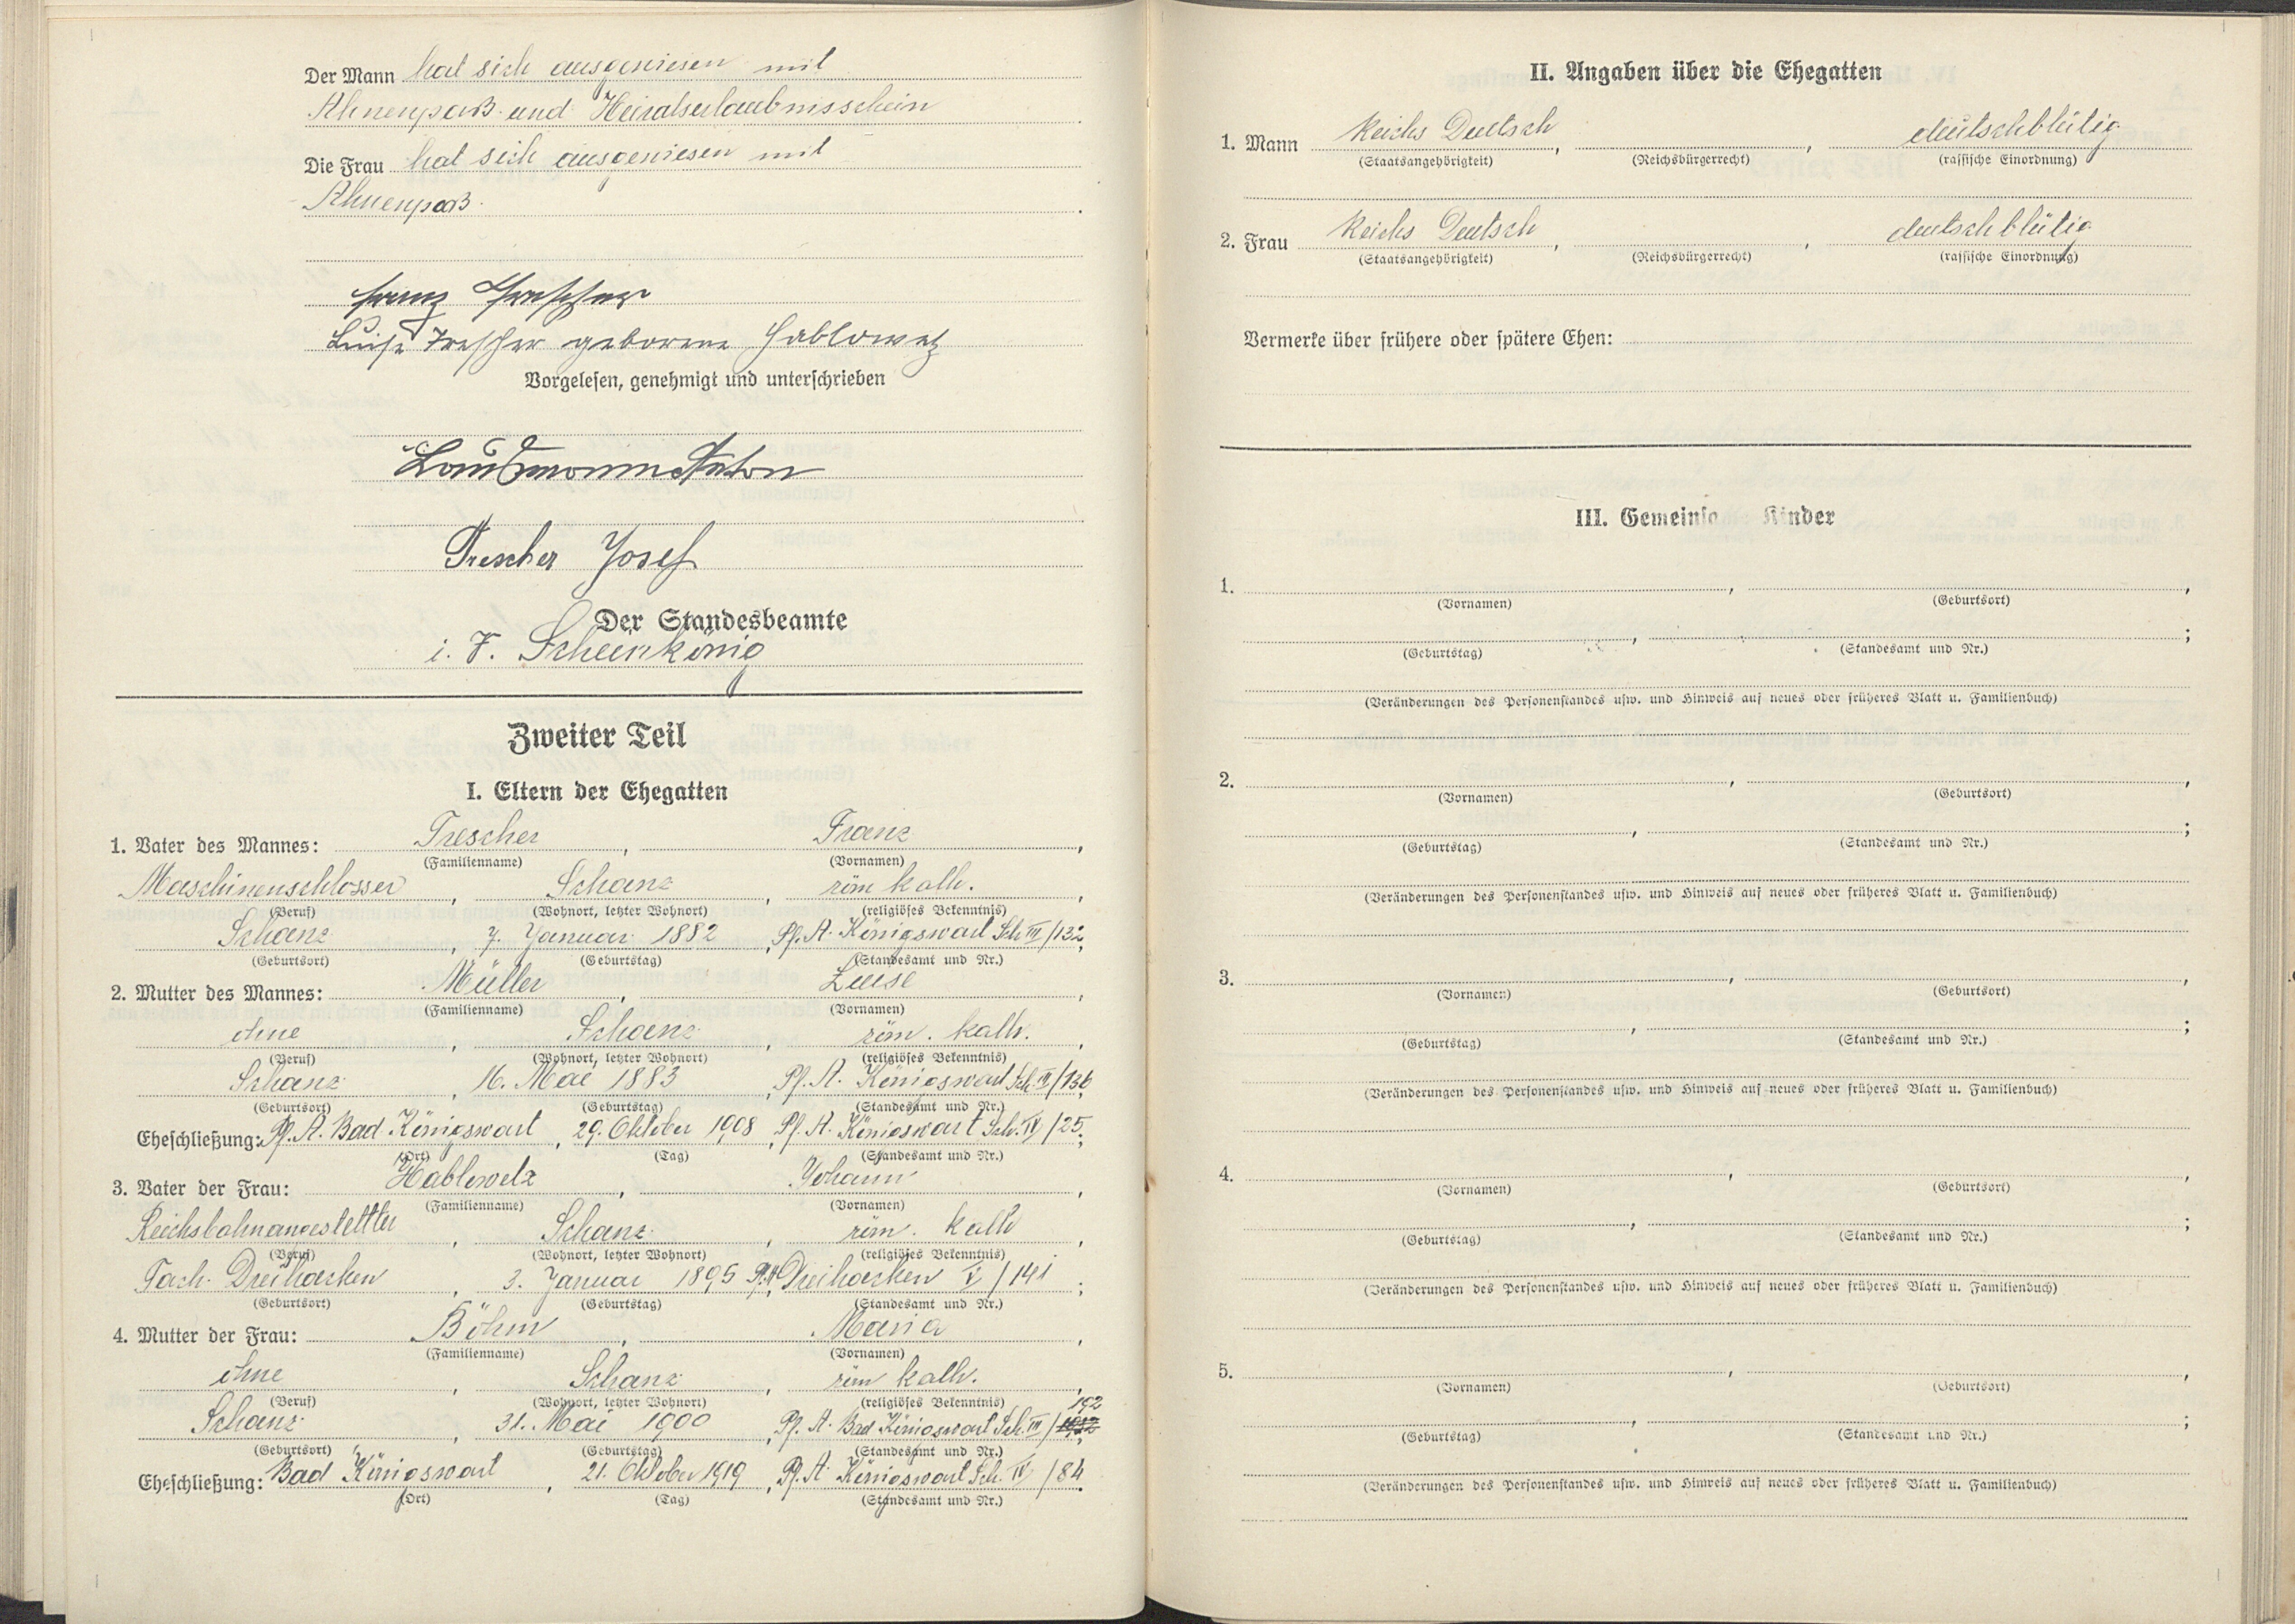 Der Mann hat sich ausgewiesen mit
Ahnenpaß und Heiratserlaubnisschein
Die Frau hat sich ausgewiesen mit
Ahnenpaß.
Franz Trescher
Luise Trescher geborene Hablowetz
Vorgelesen, genehmigt und unterschrieben
Anton
Trescher Josef
Der Standesbeamte
i. V. Scheinkönig
Zweiter Teil
I. Eltern der Ehegatten
1. Vater des Mannes: Trescher, Franz,
(Familienname) (Vornamen)
Maschinenschlosser, Schanz, röm kath.,
(Beruf) (Wohnort, letzter Wohnort) (religiöses Bekenntnis)
Schanz, 7. Januar 1882, Pf. A. Königswart Sch III/132;
(Geburtsort) (Geburtstag) (Standesamt und Nr.)
2. Mutter des Mannes: Müller, Luise,
(Familienname) (Vornamen)
ohne, Schanz, röm. kath.,
(Beruf) (Wohnort, letzter Wohnort) (religiöses Bekenntnis)
Schanz, 16. Mai 1883, Pf. A. Königswart Sch. III/136
(Geburtsort) (Geburtstag) (Standesamt und Nr.)
Eheschließung: Pf. A. Bad Königswart, 29. Oktober 1908, Pf. A. Königswart Sch. IV/25;
(Ort) (Tag) (Standesamt und Nr.)
3. Vater der Frau: Hablowetz, Johann,
(Familienname) (Vornamen)
Reichsbahnangestellter, Schanz, röm. kath,
(Beruf) (Wohnort, letzter Wohnort) (religiöses Bekenntnis)
Tach. Dreihacken, 3. Januar 1895 Pf. A, Dreihacken V/141;
(Geburtsort) (Geburtstag) (Standesamt und Nr.)
4. Mutter der Frau: Böhm, Maria,
(Familienname) (Vornamen)
ohne, Schanz, röm kath.,
(Beruf) (Wohnort, letzter Wohnort) (religiöses Bekenntnis)
Schanz, 31. Mai 1900, Pf. A. Bad Königswart Sch. III/192
(Geburtsort) (Geburtstag) (Standesamt und Nr.)
Eheschließung: Bad Königswart, 21. Oktober 1919, Pf. A. Königswart Sch. IV/84.
(Ort) (Tag) (Standesamt und Nr.)
II. Angaben über die Ehegatten
1. Mann Reichs Deutsch, , deutschblütig
(Staatsangehörigkeit) (Reichsbürgerrecht) (rassische Einordnung)
2. Frau Reichs Deutsch, , deutschblütig
(Staatsangehörigkeit) (Reichsbürgerrecht) (rassische Einordnung)
Vermerke über frühere oder spätere Ehen:
III. Gemeinsa Kinder
1. , ,
(Vornamen) (Geburtsort)
, ;
(Geburtstag) (Standesamt und Nr.)
(Veränderungen des Personenstandes usw. und Hinweis auf neues oder früheres Blatt u. Familienbuch)
2. , ,
(Vornamen) (Geburtsort)
, ;
(Geburtstag) (Standesamt und Nr.)
(Veränderungen des Personenstandes usw. und Hinweis auf neues oder früheres Blatt u. Familienbuch)
3. , ,
(Vornamen) (Geburtsort)
, ;
(Geburtstag) (Standesamt und Nr.)
(Veränderungen des Personenstandes usw. und Hinweis auf neues oder früheres Blatt u. Familienbuch)
4. , ,
(Vornamen) (Geburtsort)
, ;
(Geburtstag) (Standesamt und Nr.)
(Veränderungen des Personenstandes usw. und Hinweis auf neues oder früheres Blatt u. Familienbuch)
5. , ,
(Vornamen) (Geburtsort)
, ;
(Geburtstag) (Standesamt und Nr.)
(Veränderungen des Personenstandes usw. und Hinweis auf neues oder früheres Blatt u. Familienbuch)